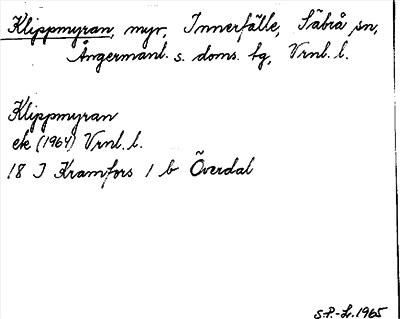 Klippmyran, myr, Innerfälle, Säbrå sn,
Ångermanl. s. doms. tg, Vrnl. l.
Klippmyran
ek (1964) Vrnl. l.
18 I Kramfors 1 b Överdal
S.P.-Lr. 1965